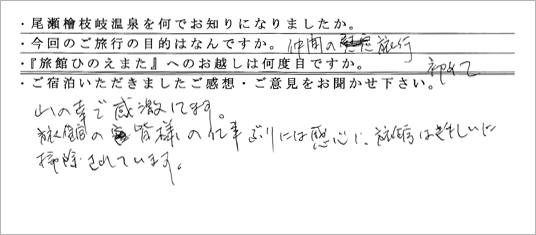 ・尾瀬檜枝岐温泉を何でお知りになりましたか。
・今回のご旅行の目的はなんですか。 仲間の慰安旅行
・『旅館ひのえまた』へのお越しは何度目ですか。 初めて
・ご宿泊いただきましたご感想・ご意見をお聞かせ下さい。
山の幸で感激してます。
旅館の皆様の仕事ぶりには感心し、旅館は
掃除されています。